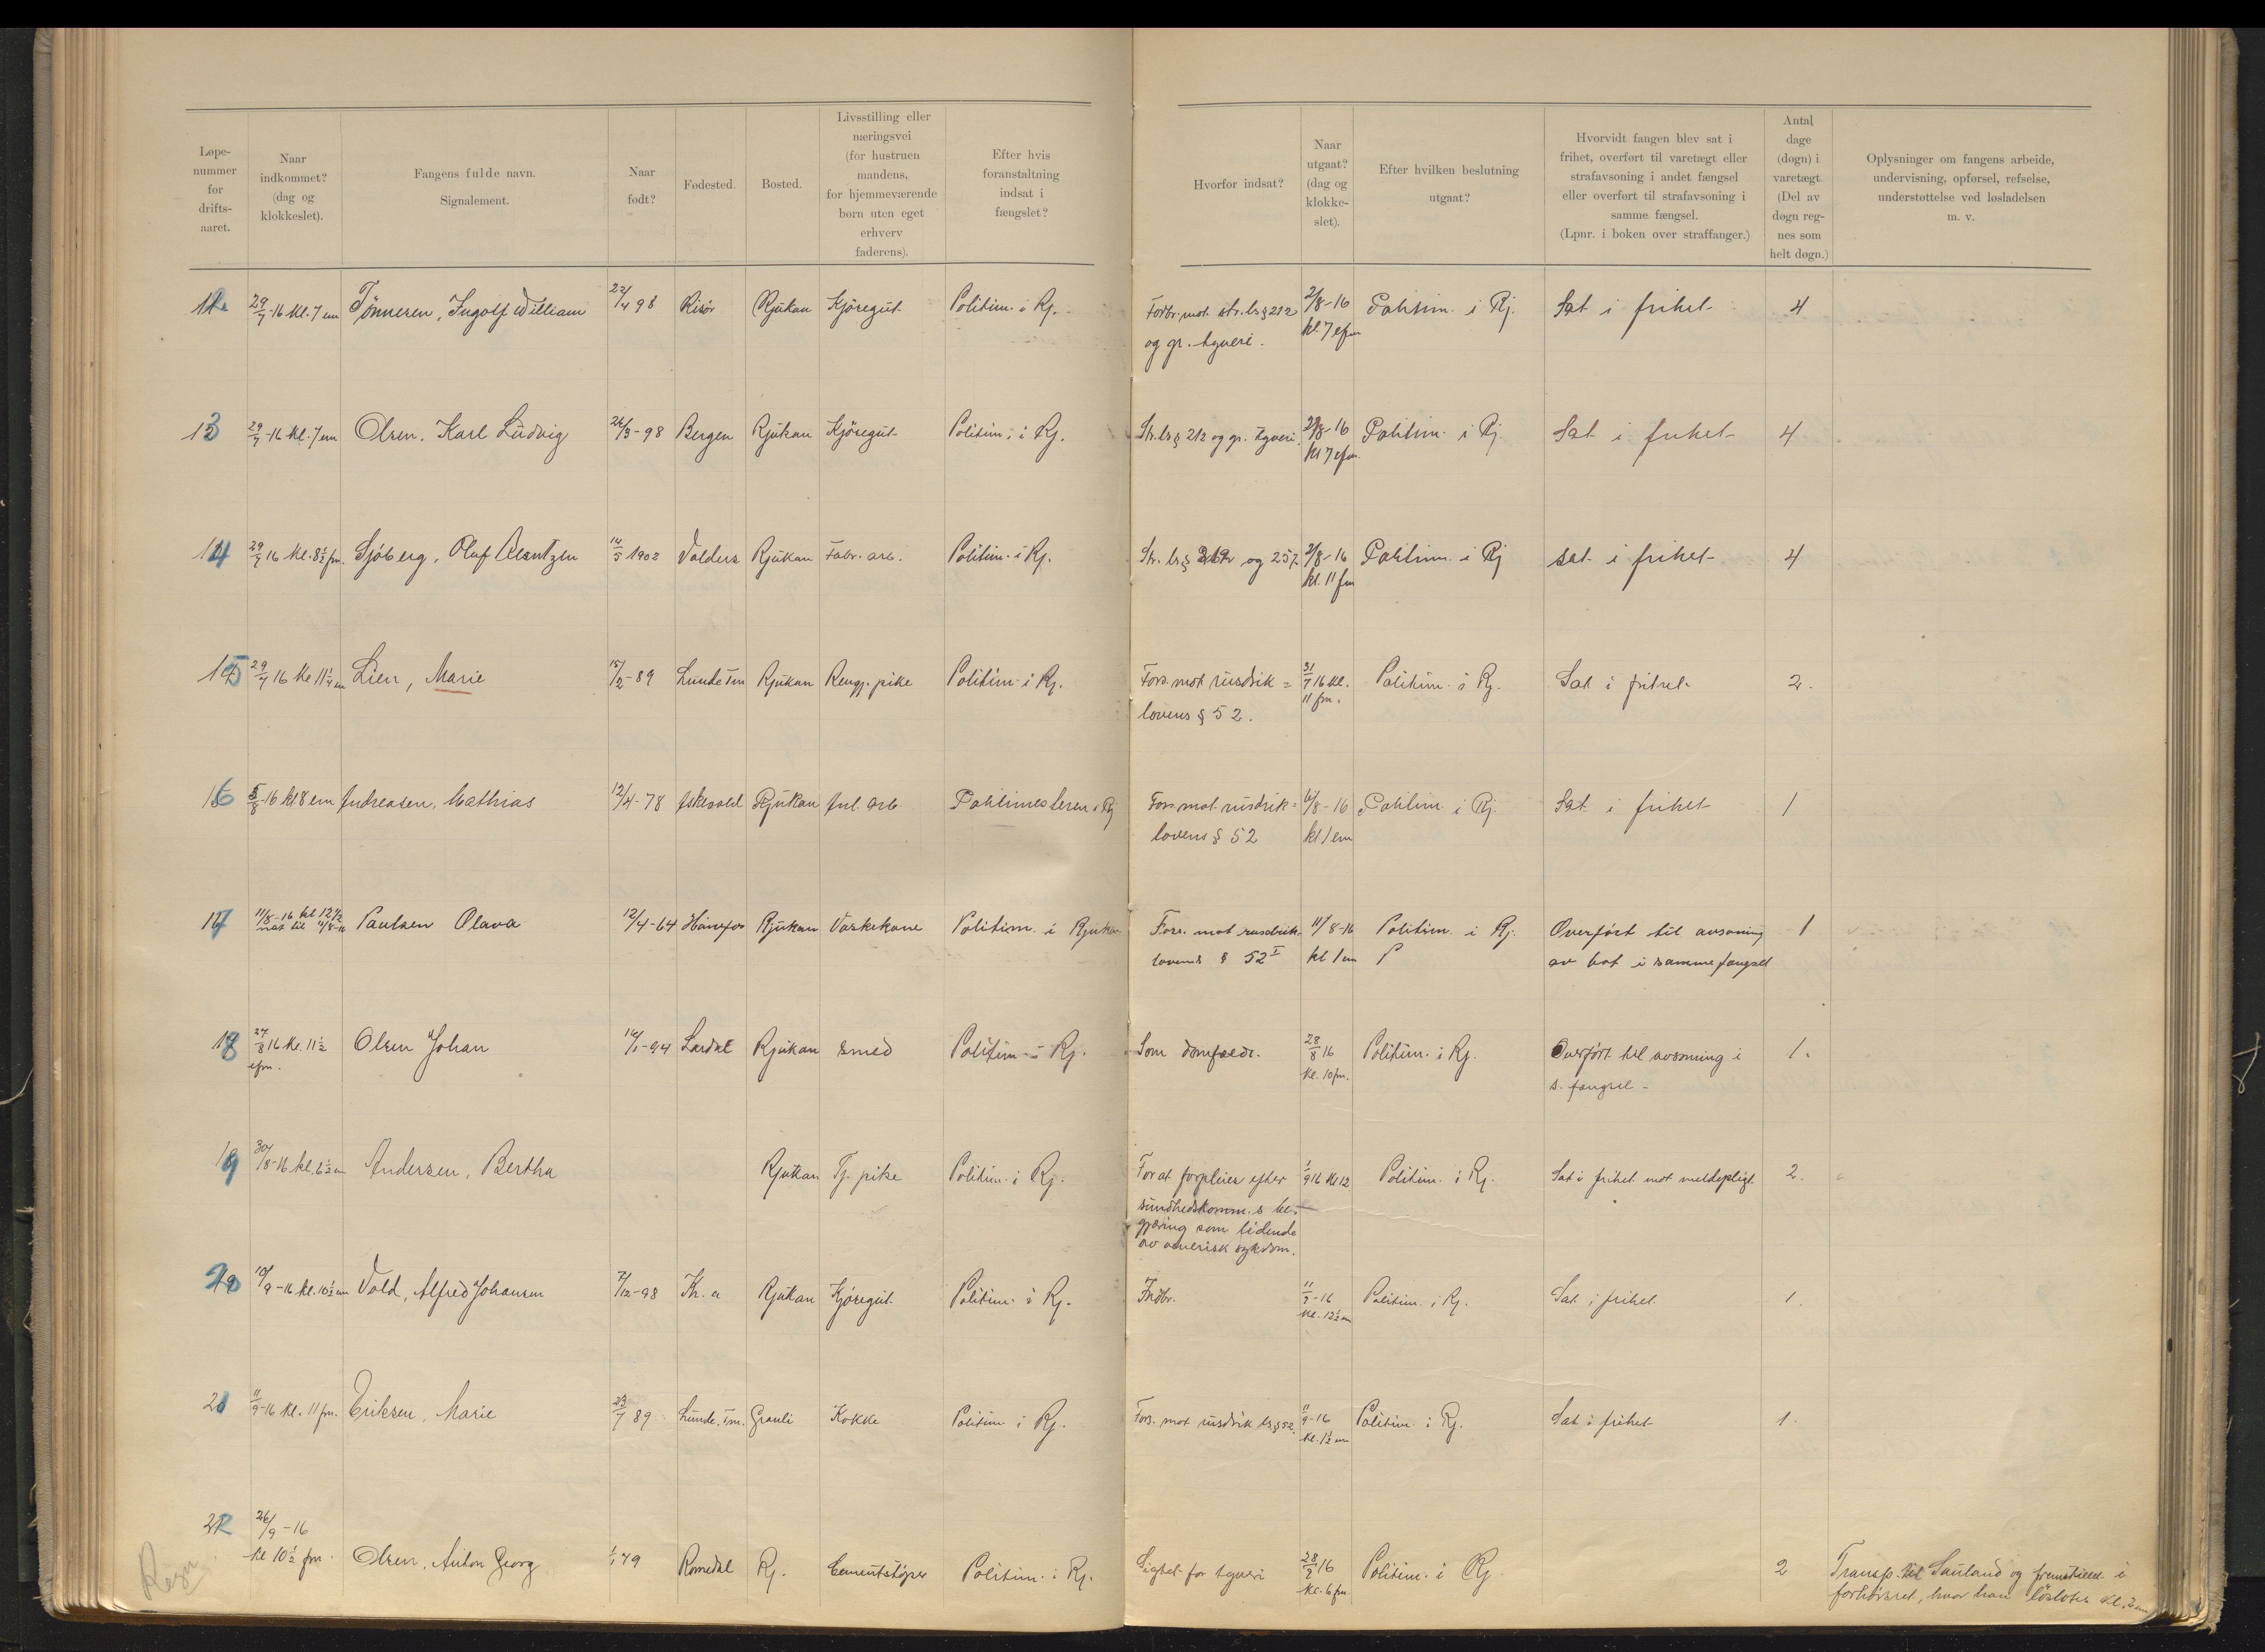 Løpe-
nummer
for
drifts-
aaret.
Naar
indkommet?
(dag og
klokkeslet).
Fangens fulde navn.
Signalement.
Naar
født?
Fødested.
Bosted.
Livsstilling eller
næringsvei
(for hustruen
mandens,
for hjemmeværende
børn uten eget
erhverv
faderens).
Efter hvis
foranstaltning
indsat i
fængslet?
Hvorfor indsat?
Naar
utgaat?
(dag og
klokke-
slet).
Efter hvilken beslutning
utgaat?
Hvorvidt fangen blev sat i
frihet, overført til varetægt eller
strafavsoning i andet fængsel
eller overført til strafavsoning i
samme fængsel.
(Lpnr. i boken over straffanger.)
Antal
dage
(døgn) i
varetægt.
(Del av
døgn reg-
nes som
helt døgn.)
Oplysninger om fangens arbeide,
undervisning, opførsel, refselse,
understøttelse ved løsladelsen
m. v.
29/7-16 kl. 7 em Tønnesen, Ingolf William 22/4 98 Risør Rjukan Kjöregut Politim. i Rj. Forbr. mot str. ls § 212 2/8-16 Politim. i Rj. Sat i frihet 4
og gr. tyveri. kl. 7 efm
13 29/7-16 kl. 7 em Olsen, Karl Ludvig 26/3-98 Bergen Rjukan Kjöregut Politim. i Rj. Str. ls § 212 og gr. tyveri. 2/8-16 Politim. i Rj. Sat i frihet 4
kl 7 efm.
14 29/7 16 kl. 8½ fm. Sjöberg, Oluf 14/5 1902 Valders Rjukan Fabr. arb. Politim. i Rj. Str. ls § 212 og 257. 2/8-16 Politim. i Rj sat i frihet 4
kl. 11 fm
15 29/7 16 kl 11¼ em Lien, Marie 15/2-89 Lunde Tm Rjukan Rengj. pike Politim. i Rj. Fors. mot rusdrik= 31/7 16 kl. Politim. i Rj. Sat i frihet 2.
lovens § 52. 11 fm.
16 5/8-16 kl 8 em Andreasen, Mathias 12/4-78 Askevold Rjukan Anl. arb. Politimesteren i Rj Fors. mot rusdrik= 6/8-16 Politim. i Rj. Sat i frihet 1
lovens § 52 kl 1 em
17 11/8-16 kl 12½ Paulsen Olava 12/4-64 Rjukan Vaskekone Politim. i Rjukan Fors. mot rusdrik- 11/8-16 Politim. i Rj. Overfört til avsoning 1
nat til 11/8-16 lovens § 52 I kl 1 em av bot i samme fangsel
18 27/8 16 kl. 11½ Olsen Johan 14/1-94 Lardal Rjukan smed Politim. i Rj. Som domfældt. 28/8 16 Politim. i Rj. Overfört til avsoning i 1.
efm. kl. 10 fm. s. fangsel -
19 30/8-16 kl. 6½ em Andersen, Bertha Rjukan Tj. pike Politim. i Rj. For at forpleies efter 1/9 16 kl 12 Politim. i Rj. Sat i frihet mot meldepligt. 2.
sundhedskomm.s be-
gjæring som lidende
av venerisk sykdom.
20 10/9-16 kl. 10½ em Vold, Alfred Johansen 7/12-98 Kr. a Rjukan Kjöregut Politim. i Rj. Indbr. 11/9-16 Politim. i Rj. Sat i frihet 1.
kl. 12½ em
21 11/9-16 kl. 11 fm. Eriksen, Marie 23/7 89 Lunde, Tm. Grauli Kokke Politim. i Rj. Fors. mot rusdrik ls § 52. 11/9-16 Politim. i Rj. Sat i frihet 1.
kl. 1½ em
22 26/9-16
kl 10½ fm. Olsen, Anton Georg 1/1 79 Romedal Rj. Cementstöper Politim. i Rj. Sigtet for tyveri 28/9 16 Politim. i Rj 2 Transp. til Sauland og fremstillet i
kl. 6 fm. forhörsret, hvor han löslotes kl. 2 em